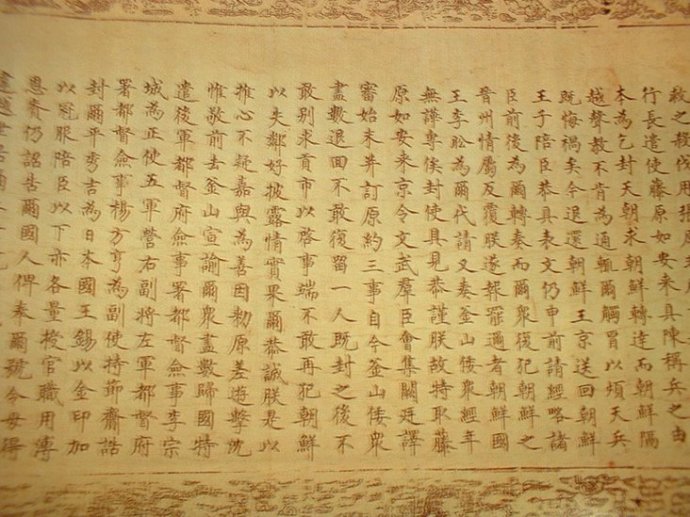 救之殺伐用張
行長遣使藤原如安来具陳稱兵之由
本為乞封天朝求朝鮮轉達而朝鮮隔
越聲教不肯為通輒爾觸冒以煩天兵
既悔禍矣今退還朝鮮王京送回朝鮮
王子陪臣恭具表文仍申前請經略諸
臣前後為爾轉奏而爾衆復犯朝鮮之
晉州情屬反覆朕遂報罷邇者朝鮮國
王李昖為爾代請又奏釜山倭衆經年
無譁專俟封使具見恭謹朕故特取藤
原如安来京令文武羣臣會集闕廷譯
審始末并訂原約三事自今釜山倭衆
盡數退回不敢復留一人既封之後不
敢別求貢市以啓事端不敢再犯朝鮮
以失鄰好披露情實果爾恭誠朕是以
推心不疑嘉與為善因勑原差遊擊沈
惟敬前去釜山宣諭爾衆盡數歸國特
遣後軍都督府僉事署都督僉事李宗
城為正使五軍營右副將左軍都督府
署都督僉事楊方亨為副使持節齎誥
封爾平秀吉為日本國王錫以金印加
以冠服陪臣以下亦各量授官職用溥
恩賚仍詔告爾國人俾奉爾號令毋得